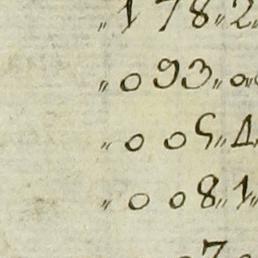 〃178〃2〃
〃093〃0
〃005〃4〃
〃008〃1〃